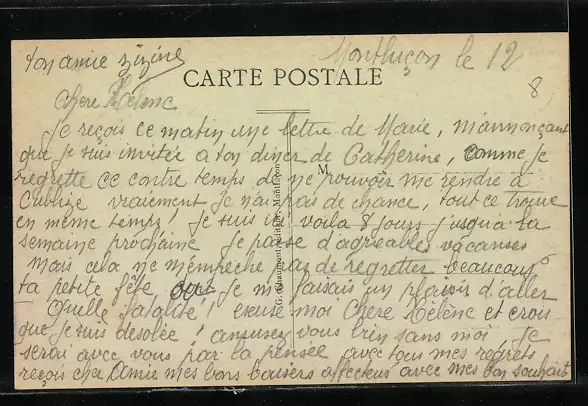 ton amie Zizine
Montluçon le 12
CARTE POSTALE
8
Chere Hélène
Je reçois ce matin une lettre de Marie, m'annonçant
que je suis invitée a ton diner de Catherine, comme je
regrette ce contre temps de ne pouvoir me rendre à
vraiement je n'ai pas de chance, tout ce trouve
en même temps! je suis ici voila 8 jours jusqu'a la
semaine prochaine je passe d'agreables vacances
mais cela ne m'empeche pas de regretter beaucoup
ta petite fête je me faisais un plaisir d'aller
Quelle fatalité! excuse moi Chere Hélène et crois
que je suis desolée! amusez vous bien sans moi je
serai avec vous par la pensée avec tous mes regrets
reçois cher Amie mes bons baisers affectueux avec mes bon souhait
M